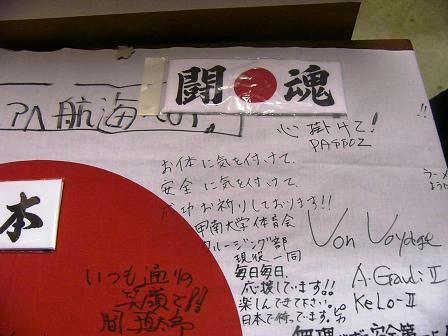 闘魂
航海
心掛けて!
お体に気を付けて、
安全に気を付けて、
成功お祈りしております!!
甲南大学体育会
クルージング部
現役一同
毎日毎日、
応援しています!!
楽しんできて下さい。
日本で待っています。
Von Voyage
A-Gaudi II
KeLo-II
本
いつも通りの
笑顔で!!